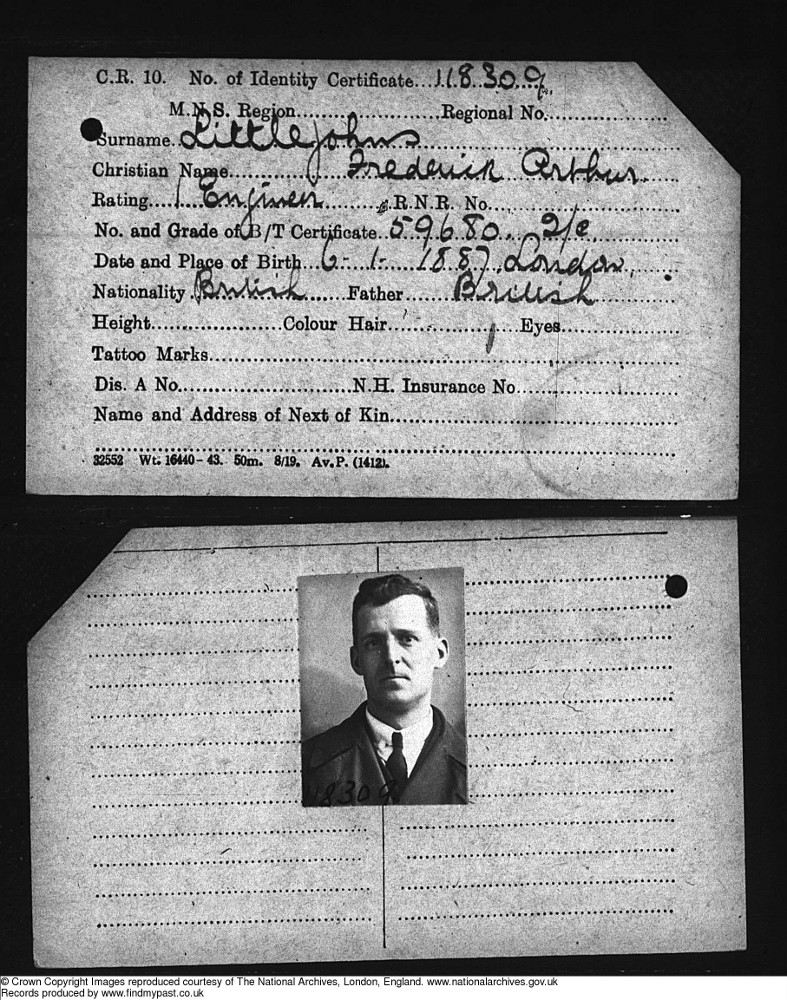 C.R. 10. No. of Identity Certificate...118309
M.N.S. Region..............Regional No.............
Surname...Littlejohns
Christian Name............Frederick Arthur
Rating....1 Engineer..........R.N.R. No.............
No. and Grade of B/T Certificate..59680. 2/c.
Date and Place of Birth...6-1-1887, London,
Nationality.British......Father.......British
Height..................Colour Hair..................Eyes..................
Tattoo Marks........................
Dis. A No........................N.H. Insurance No........................
Name and Address of Next of Kin........................
32552 Wt. 16440-43. 50m. 8/19. Av.P. (1412).
118309
© Crown Copyright Images reproduced courtesy of The National Archives, London, England. www.nationalarchives.gov.uk
Records produced by www.findmypast.co.uk